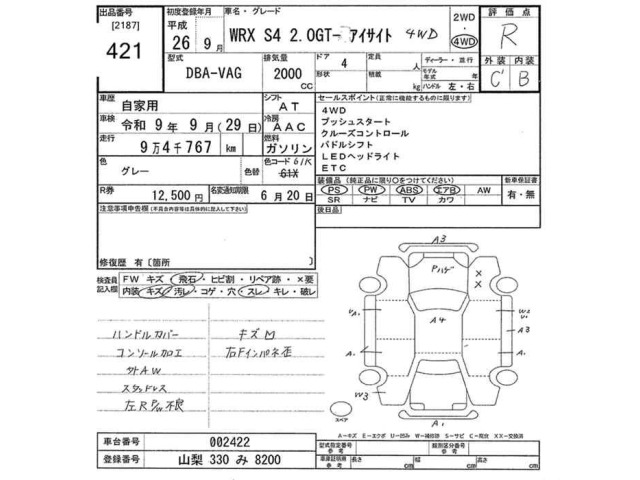 出品番号 [2187] 421
初度登録年月 平成 26年 9月
車名・グレード WRX S4 2.0GT- アイサイト 4WD
2WD ・ 4WD
評価点 R
外装 C' 内装 B
型式 DBA-VAG
排気量 2000 CC
ドア 4
形状
人員 人
積載 kg
ディーラー・並行
モデル年式 年
ハンドル 左・右
車歴 自家用
シフト AT
車検 令和 9年 9月(29日)
冷房 AAC
走行 9万4千767 km
燃料 ガソリン
色 グレー
色替
色コード 61K
61X
R券 12,500円
名変通知期限 6月20日
セールスポイント(正常に機能するものに限ります)
4WD
プッシュスタート
クルーズコントロール
パドルシフト
LEDヘッドライト
ETC
装備品(純正品に限り○をつけてください)
PS PW ABS エアB AW
SR ナビ TV カワ
新車保証書 有・無
後日品
注意事項申告欄(※具体的に記入して下さい)
修復歴 有〔箇所 〕
検査員記入欄
FW キズ 飛石・ヒビ割・リペア跡・×要
内装 キズ 汚レ・コゲ・穴・スレ・キレ・破レ
ハンドルカバー キズ凹
コンソール加工 右Fインパネ歪
外AW
スタッドレス
左R P/W 不良
A3
Pハゲ
×
×
A4
A.
W2
A3
A.
W3
A1
スペア
A-キズ E-エクボ U-凹み W-補修跡 S-サビ C-腐食 XX-交換済
車台番号 002422
登録番号 山梨 330 み 8200
型式指定番号 参考
類別区分番号 参考
車庫証明用 参考
長さ cm 幅 cm 高さ cm